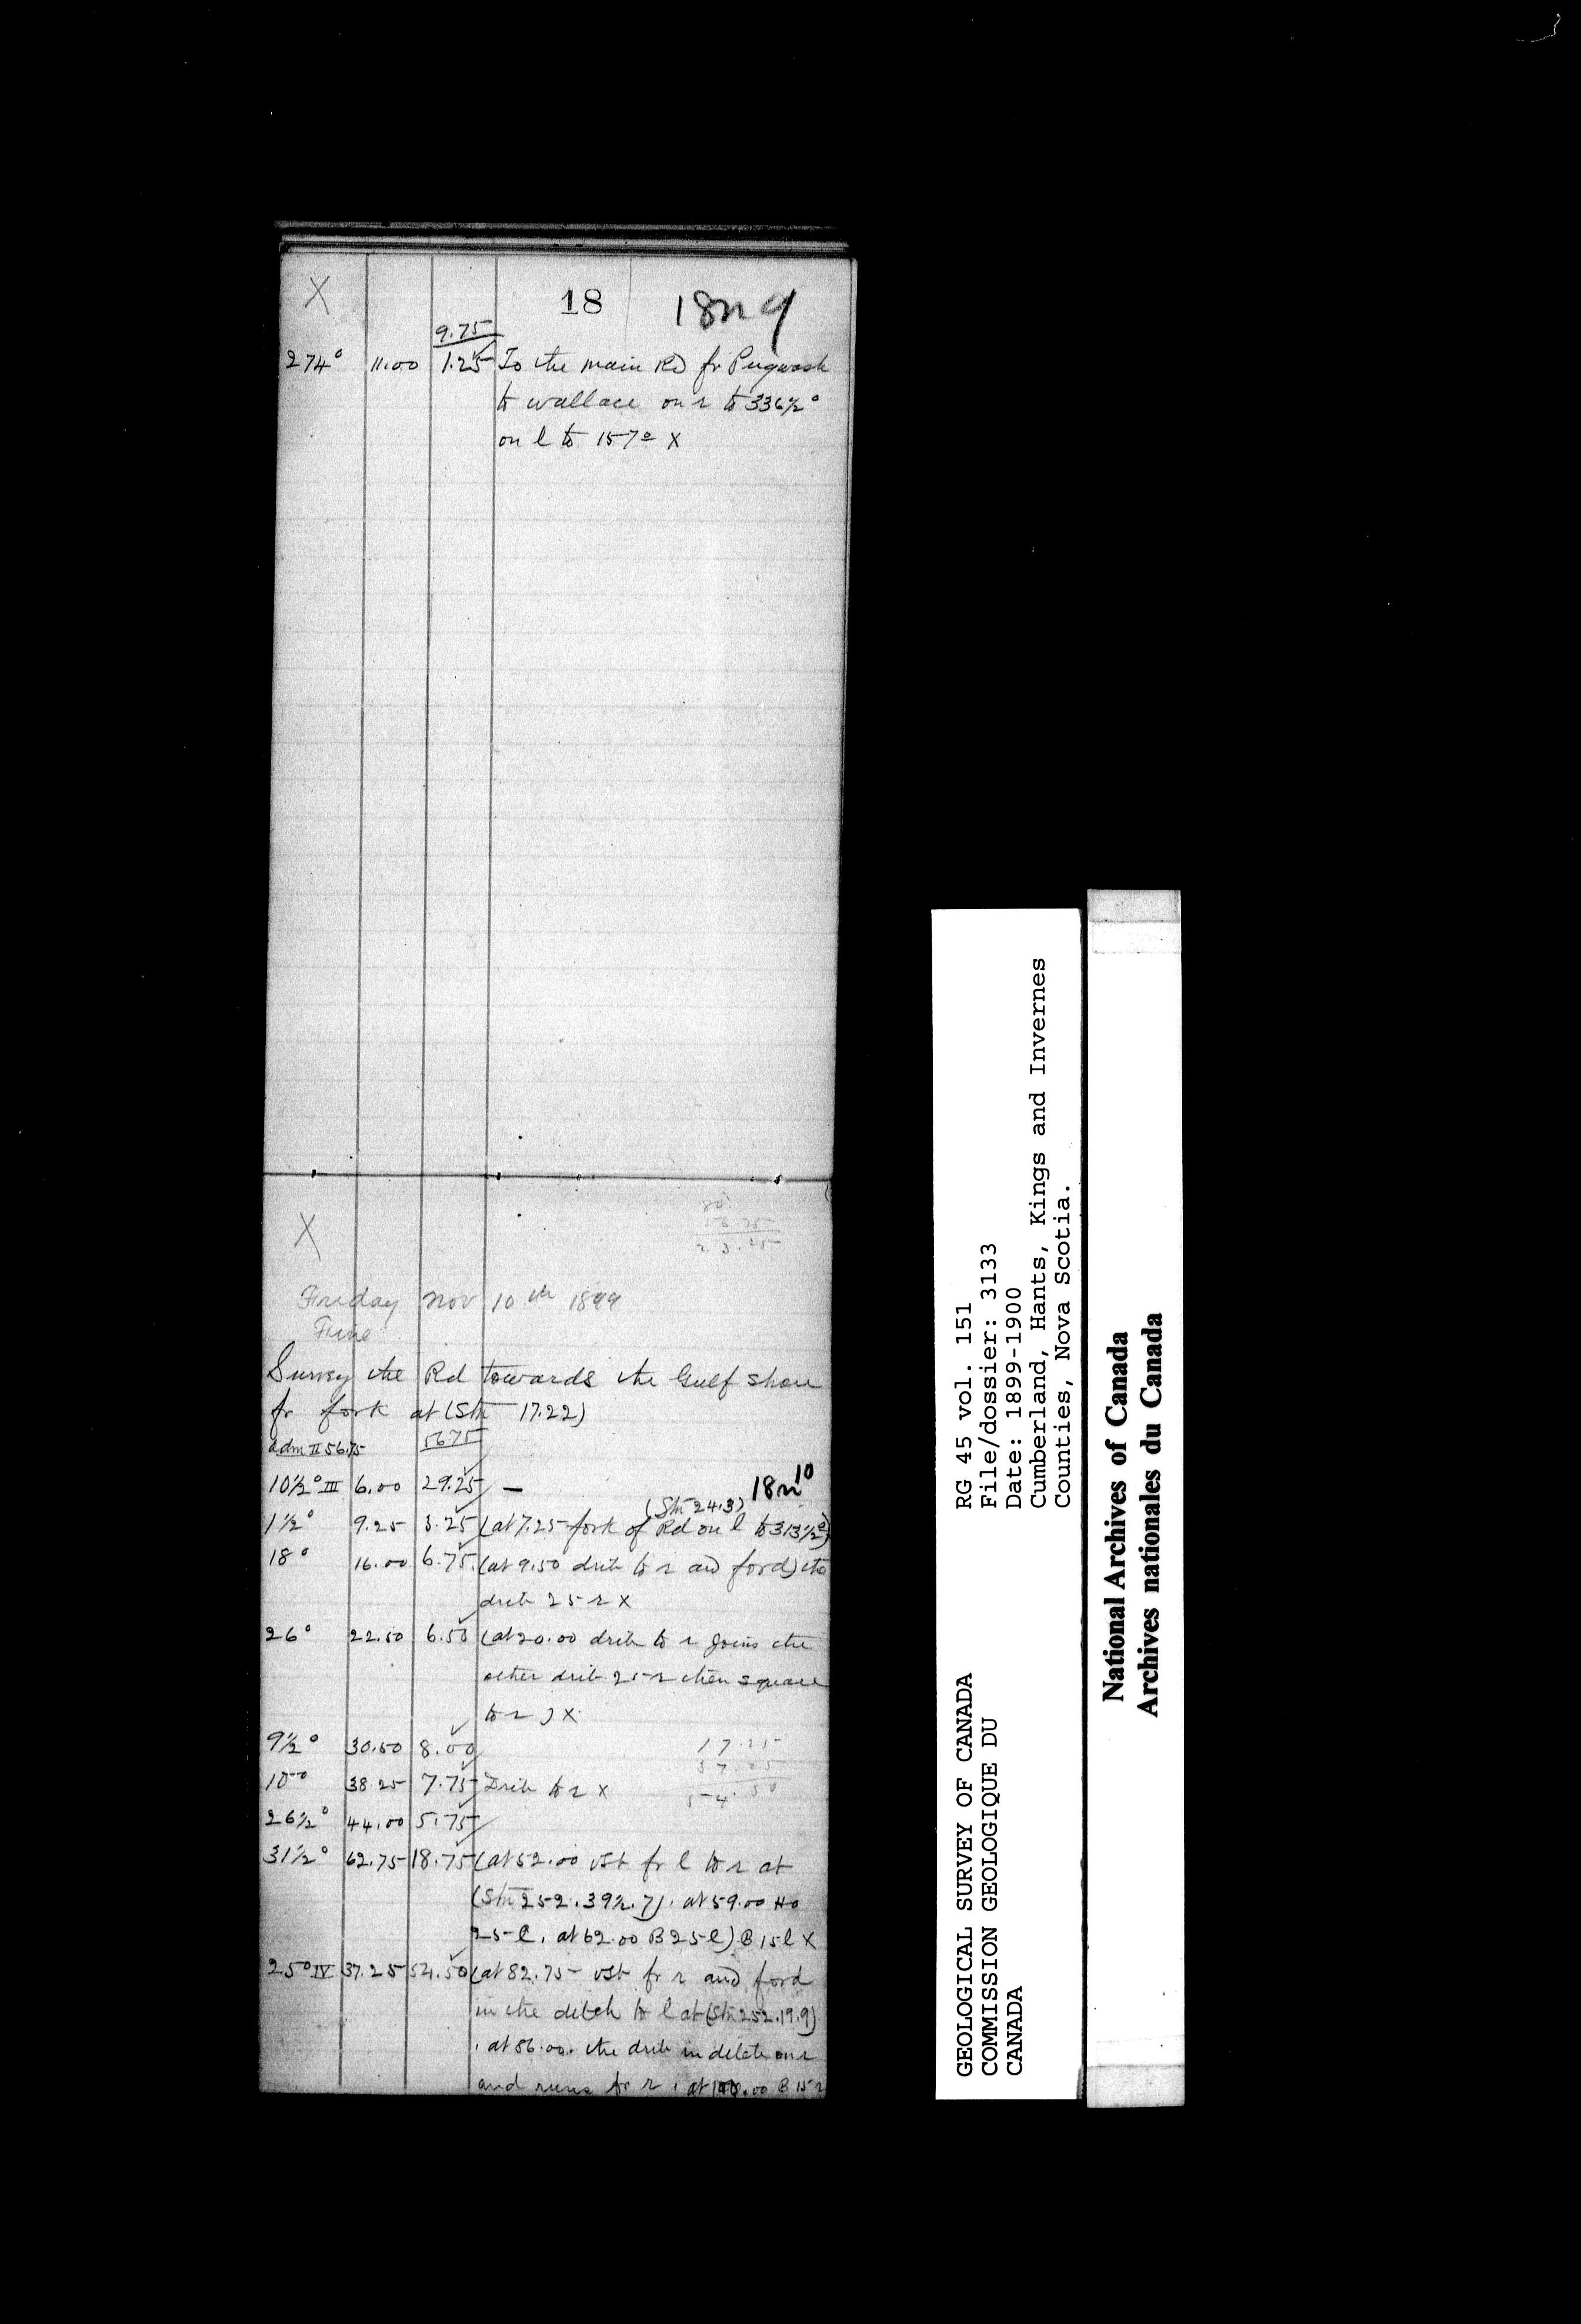 X
18
18n9
9.75
274° 11.00 1.25 To the main Rd fr Pugwash
to wallace on r to 336½°
on l to 157° X
X
80
56.75
23.25
Friday Nov 10th 1899
Fine
Survey the Rd towards the Gulf shore
fr fork at (Stn 17.22)
adm II 56.75 56.75
10½° III 6.00 29.25 — 18n10
(Stn 24.3)
1½° 9.25 3.25 (at 7.25 fork of Rd on l to 313½°)
18° 16.00 6.75 (at 9.50 drib to r and ford) the
drib 25 r X
26° 22.50 6.50 (at 20.00 drib to r joins the
other drib 25 r then square
to r) X
9½° 30.50 8.00
10° 38.25 7.75 Drib to r X
17.25
37.25
54.50
26½° 44.00 5.75
31½° 62.75 18.75 (at 52.00 vst fr l to r at
(Stn 252.39½.7), at 59.00 Ho
25 l, at 62.00 B 25 l) B 15 l X
25° IV 37.25 54.50 (at 82.75 vst fr r and ford
in the ditch to l at (Stn 252.19.9)
, at 86.00. the drib in ditch on r
and runs to r, at .00 B 15 r
GEOLOGICAL SURVEY OF CANADA
COMMISSION GEOLOGIQUE DU
CANADA
RG 45 vol. 151
File/dossier: 3133
Date: 1899-1900
Cumberland, Hants, Kings and Invernes
Counties, Nova Scotia.
National Archives of Canada
Archives nationales du Canada